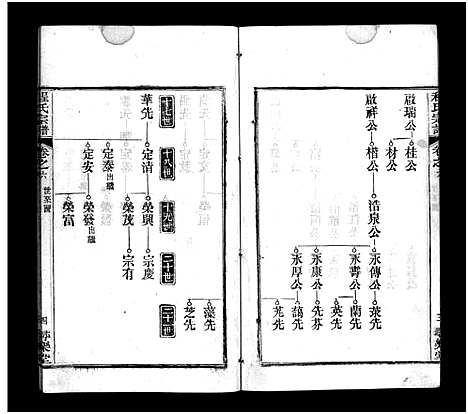 程氏宗譜
卷之六
啟瑞公
桂公
材公
啟祥公
楷公
浩泉公
永傳公
萊先
永壽公
蘭先
英先
永康公
先芬
永厚公
藹先
芄先
三
藻先
芝先
十七世
十八世
十九世
二十世
二十一世
華先
定清
榮興
宗慶
榮茂
宗有
定泰出繼
定安
榮發出繼
榮富
程氏宗譜
卷之六
世系圖
四